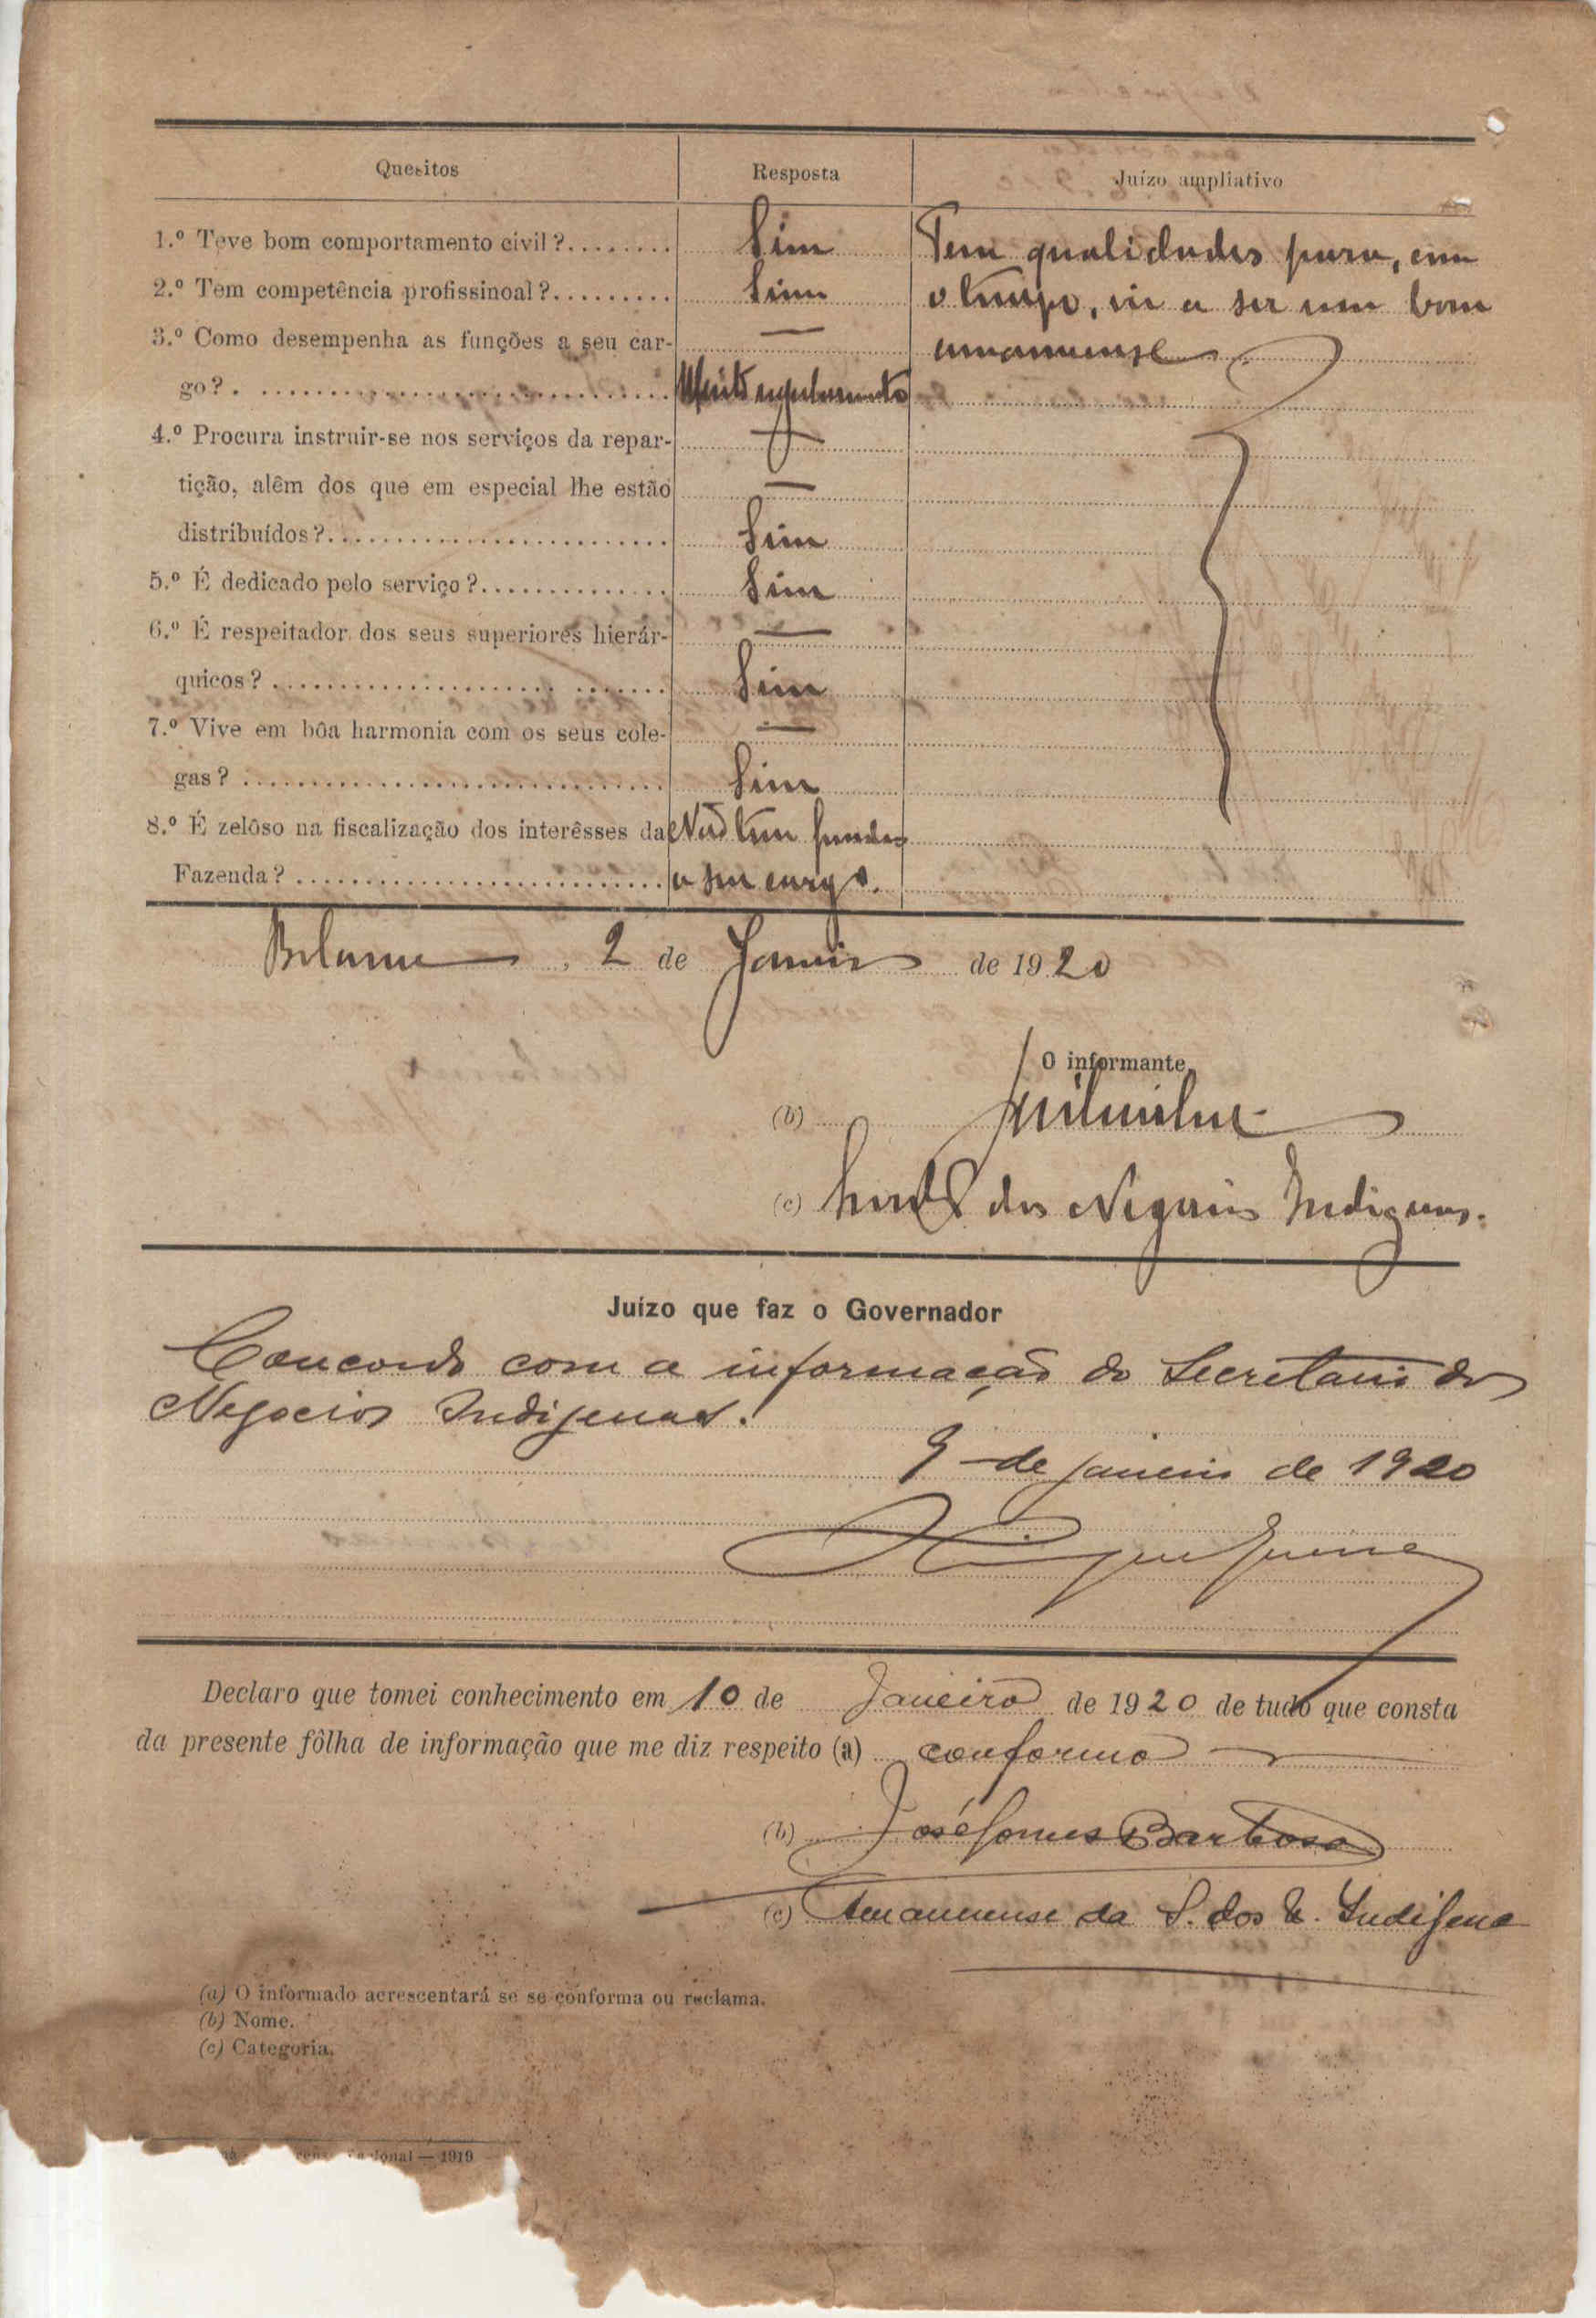 Quesitos Resposta Juízo ampliativo
1.º Teve bom comportamento civil?........ Sim Tem qualidades para, com
2.º Tem competência profissinoal?......... Sim o tempo, vir a ser um bom
3.º Como desempenha as funções a seu car- — amanuense
go?. .............................. Muito regularmente
4.º Procura instruir-se nos serviços da repar-
tição, alêm dos que em especial lhe estão —
distribuídos?......................... Sim
5.º É dedicado pelo serviço?.............. Sim
6.º É respeitador dos seus superiores hierár- —
quicos? ..................... ....... Sim
7.º Vive em bôa harmonia com os seus cole- —
gas? ............................... Sim
8.º É zelôso na fiscalização dos interêsses da Não tem fundos
Fazenda? ........................... a seu cargo.
Bolama, 2 de Janeiro de 1920
O informante,
(b)
(c) dos Negocios Indigenas.
Juízo que faz o Governador
Concordo com a informação do Secretario dos
Negocios Indigenas.
9 de janeiro de 1920
Declaro que tomei conhecimento em 10 de Janeiro de 1920 de tudo que consta
da presente fôlha de informação que me diz respeito (a) conformo
(b) José Gomes Barbosa
(c) Amanuense da S. dos N. Indigena
(a) O informado acrescentará se se conforma ou reclama.
(b) Nome.
(c) Categoria.
onal — 1919